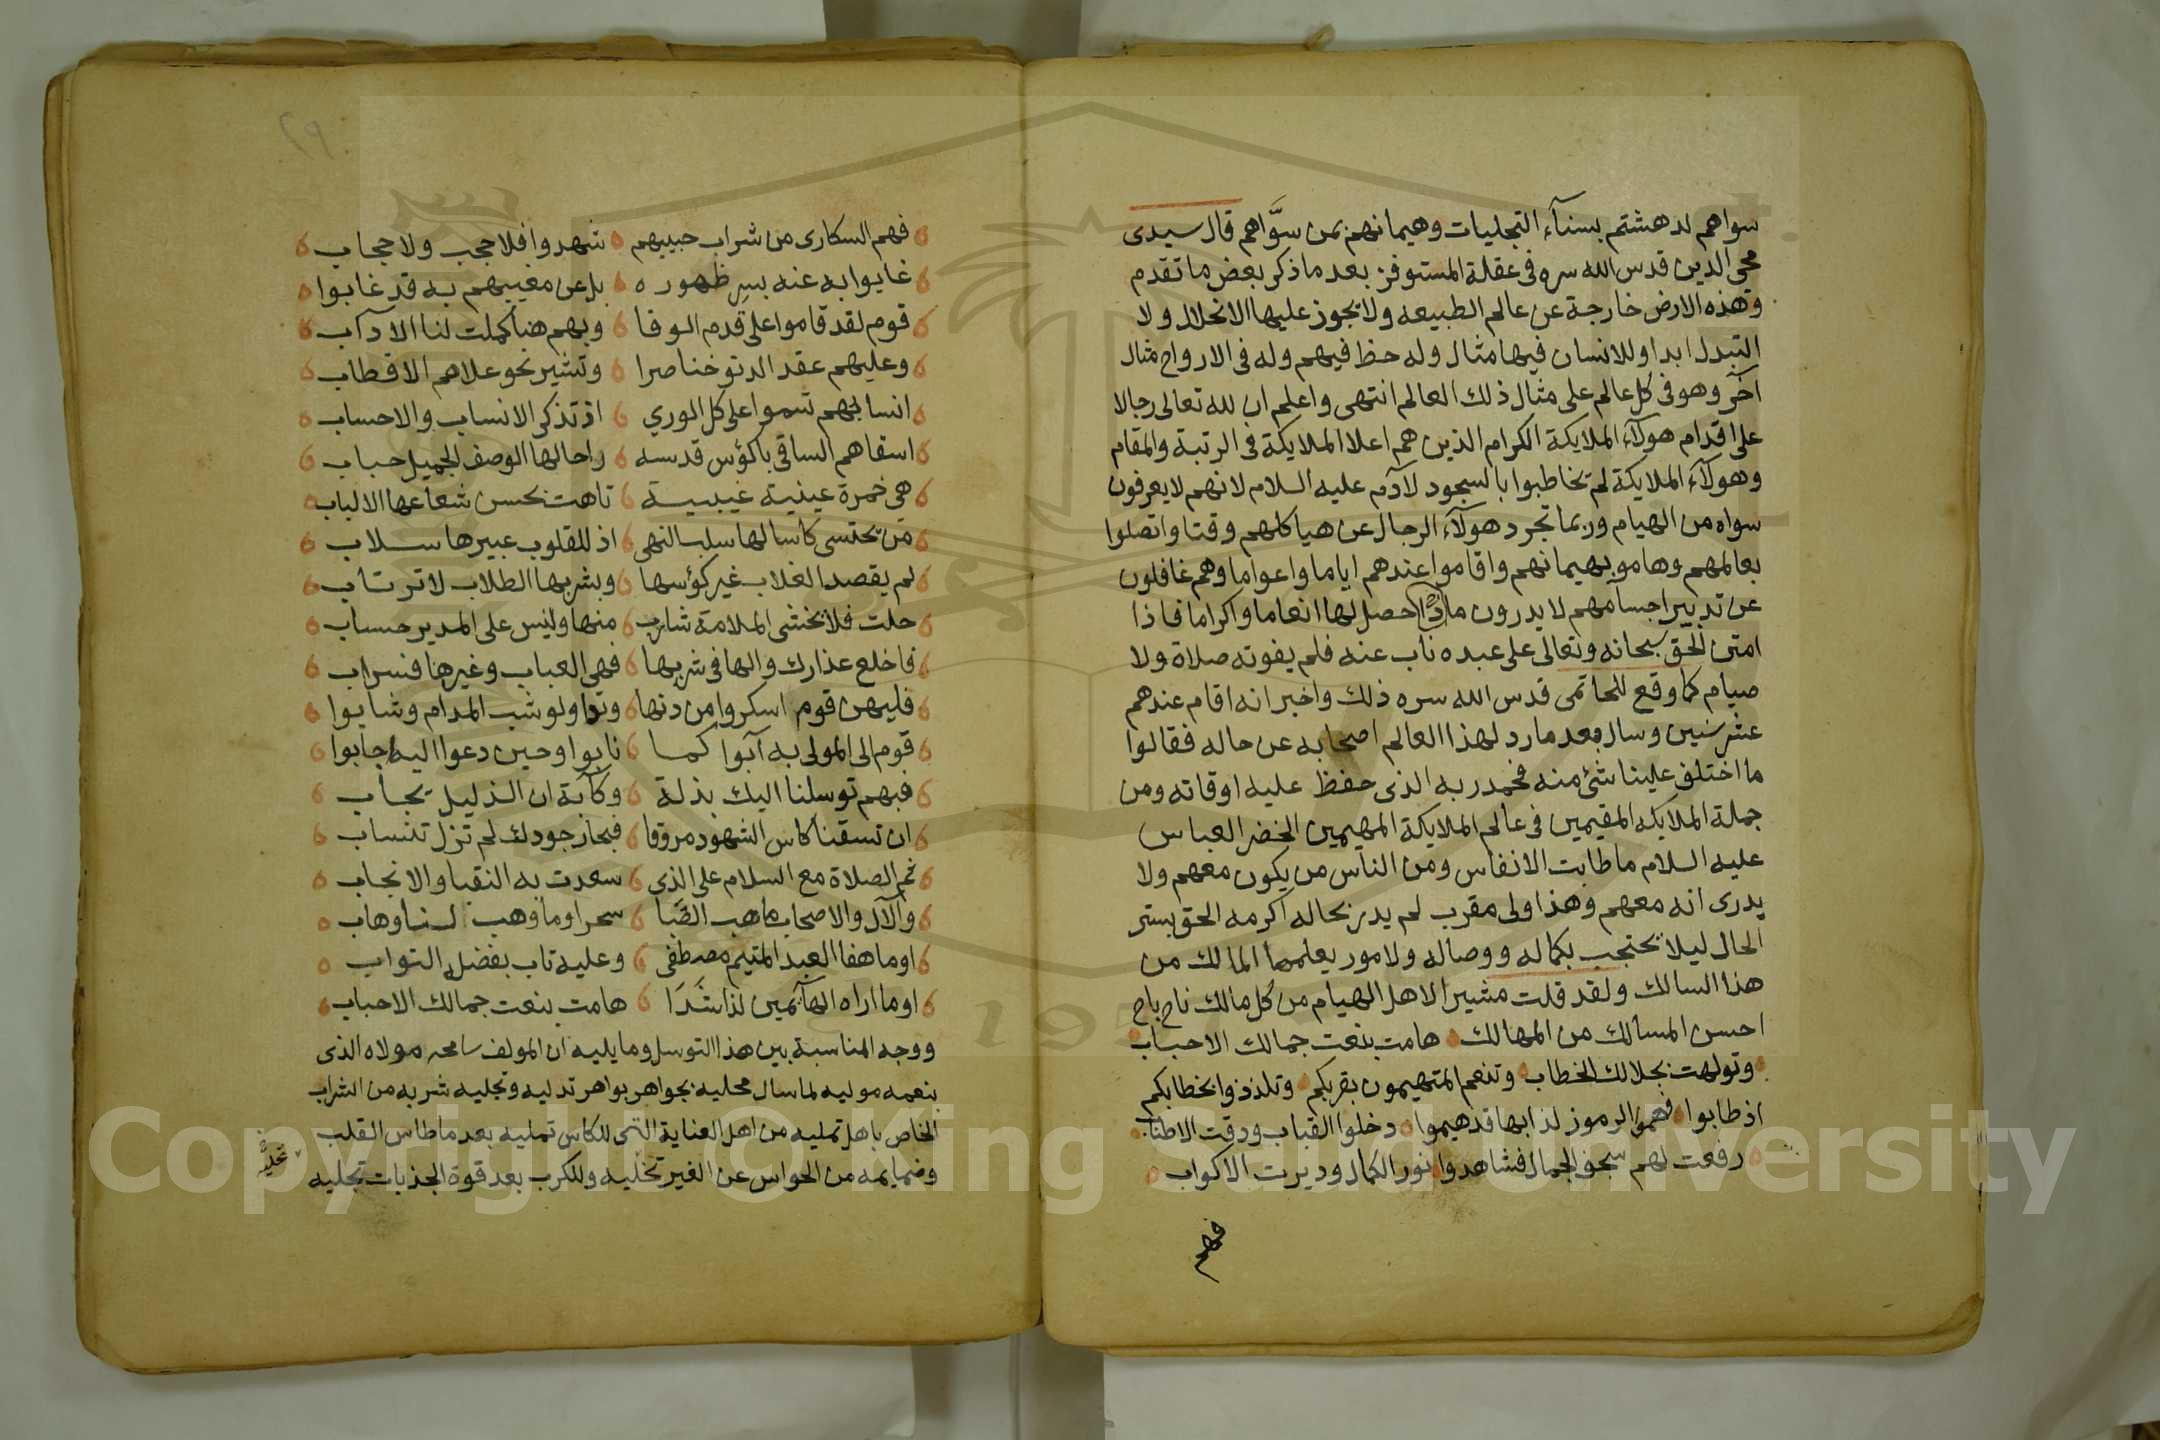 سواهم لدهشتم بسنآء التجليات وهيمانهم بمن سوَّاهم قال سيدى
محى الدين قدس الله سره فى عقلة المستوفز بعد ما ذكر بعض ما تقدم
وهذه الارض خارجة عن عالم الطبيعه ولا يجوز عليها الانحلال ولا
التبدل ابدا وللانسان فيها مثال وله حظ فيهم وله فى الارواح مثال
آخر وهو فى كل عالم على مثال ذلك العالم انتهى واعلم ان لله تعالى رجالا
على اقدام هولآء الملايكة الكرام الذين هم اعلا الملايكة فى الرتبة والمقام
وهولآء الملايكة لم يخاطبوا بالسجود لآدم عليه السلام لانهم لا يعرفون
سواه من الهيام وربما تجرد هولآء الرجال عن هياكلهم وقتا واتصلوا
بعالمهم وهاموا بهيمانهم واقاموا عندهم اياما واعواما وهم غافلون
عن تدبير اجسامهم لا يدرون ماذا حصل لها انعاما واكراما فاذا
امتن الحق سبحانه وتعالى على عبده ناب عنه فلم يفوته صلاة ولا
صيام كما وقع للحاتمى قدس الله سره ذلك واخبر انه اقام عندهم
عشر سنين وسال بعد ما رد لهذا العالم اصحابه عن حاله فقالوا
ما اختلف علينا شئ منه فحمد ربه الذى حفظ عليه اوقاته ومن
جملة الملايكه المقيمين فى عالم الملايكة المهيمين الخضر العباس
عليه السلام ما طابت الانفاس ومن الناس من يكون معهم ولا
يدرى انه معهم وهذا ولى مقرب لم يدر بحاله اكرمه الحق بستر
الحال ليلا يحتجب بكماله ووصاله ولامور يعلمها المالك من
هذا السالك ولقد قلت مشيرا لاهل الهيام من كل مالك ناح باح
احسن المسالك من المهالك هامت بنعت جمالك الاحباب
وتولهت بجلالك الخطاب وتنعم المتهيمون بقربكم وتلذذوا بخطابكم
اذ طابوا فهموا الرموز لذا بها قد هيموا دخلوا القباب ودقت الاطناب
رفعت لهم سجف الجمال فشاهدوا نور الكمال وديرت الاكواب
فهم
٢٩
فهم السكارى من شراب حبيبهم شهدوا فلا حجب ولا حجاب
غابوا به عنه بسر ظهوره بل عن مغيبهم به قد غابوا
قوم لقد قاموا على قدم الوفا وبهم هنا كملت لنا الاداب
وعليهم عقد الدنو خناصرا وتشير نحو علاهم الاقطاب
انسابهم تسموا على كل الوري اذ تذكر الانساب والاحساب
اسقاهم الساقى باكؤس قدسه راحا لها الوصف الجميل حباب
هى خمرة عينية غيبية تاهت بحسن شعاعها الالباب
من يحتسى كاسا لها سلب النهى اذ للقلوب عبيرها سلاب
لم يقصد الغلاب غير كؤسها وبشربها الطلاب لا ترتاب
حلت فلا يخشى الملامة شارب منها وليس على المدير حساب
فاخلع عذارك والها فى شربها فهى العباب وغيرها فسراب
فليهن قوم اسكروا من دنها وتداولو شب المدام وشابوا
قوم الى المولى به آبوا كما نابوا وحين دعوا اليه اجابوا
فبهم توسلنا اليك بذلة وكآبة ان الذليل يجاب
ان تسقنا كاس الشهود مروقا فبحار جودك لم تزل تنساب
ثم الصلاة مع السلام على الذى سعدت به النقبا والانجاب
والآل والاصحاب ما هب الصَّبا سحرا وما وهب لنا وهاب
اوما هفا العبد المتيم مصطفى وعليه تاب بفضله التواب
اوما اراه الهآئمين لذا شَدَا هامت بنعت جمالك الاحباب
ووجه المناسبة بين هذا التوسل وما يليه ان المولف سامحه مولاه الذى
بنعمه موليه لما سال محليه بجواهر بواهر تدليه وتجليه شربه من الشراب
الخاص باهل تمليه من اهل العناية التى للكاس تمليه بعد ما طاس القلب
وضمايمه من الحواس عن الغير تخليه وللكرب بعد قوة الجذبات تجليه